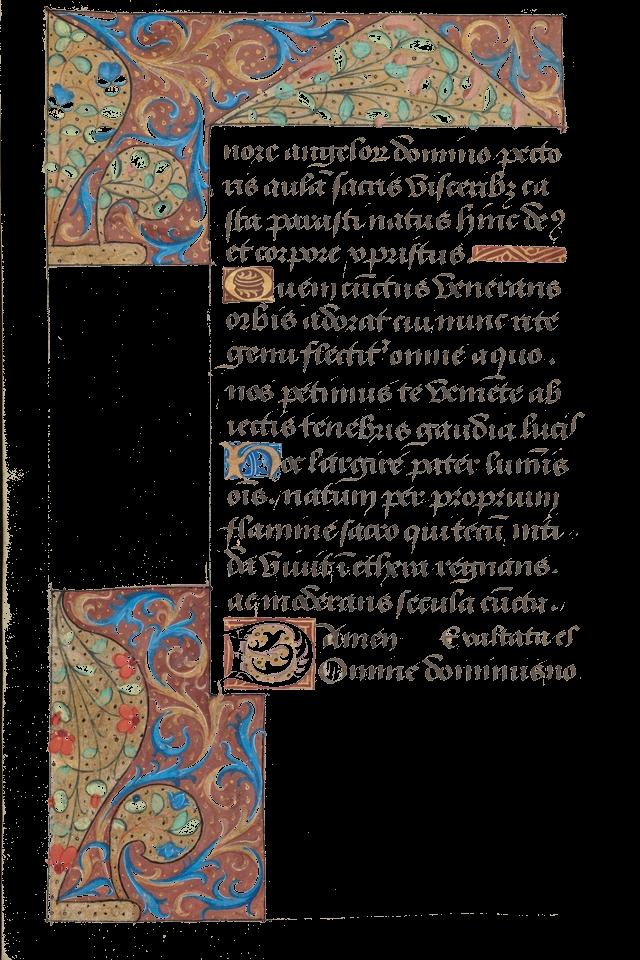 nore angeloꝝ domino pecto
ris aulā sacris visceribꝫ ca
sta parasti natus hinc deꝰ
et corpore xp̄ristus.
Quem cūctus venerans
orbis adorat cui nunc rite
genu flectitᷣ omne a quo.
nos petimus te veniēte ab
iectis tenebris gaudia lucis
Hoc largire pater luminis
oīs. natum per proprium
flamine sacro qui tecū niti
da viuit ī ethera regnans.
ac moderans secula cūcta.
Amen Exaltata es
Omine dominus no